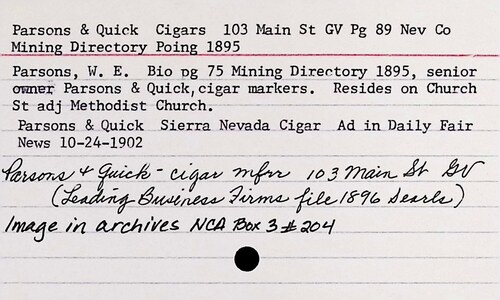 Parsons & Quick Cigars 103 Main St GV Pg 89 Nev Co
Mining Directory Poing 1895
Parsons, W. E. Bio pg 75 Mining Directory 1895, senior
owner Parsons & Quick, cigar markers. Resides on Church
St adj Methodist Church.
Parsons & Quick Sierra Nevada Cigar Ad in Daily Fair
News 10-24-1902
Parsons & Quick - cigar mfrr 103 Main St GV
(Leading Business Firms file 1896 Searls)
Image in archives NCA Box 3 #204